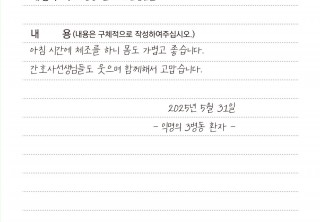 내 용 (내용은 구체적으로 작성하여주십시오.)
아침 시간에 체조를 하니 몸도 가볍고 좋습니다.
간호사선생님들도 웃으며 함께해서 고맙습니다.
2025년 5월 31일
- 익명의 3병동 환자 -